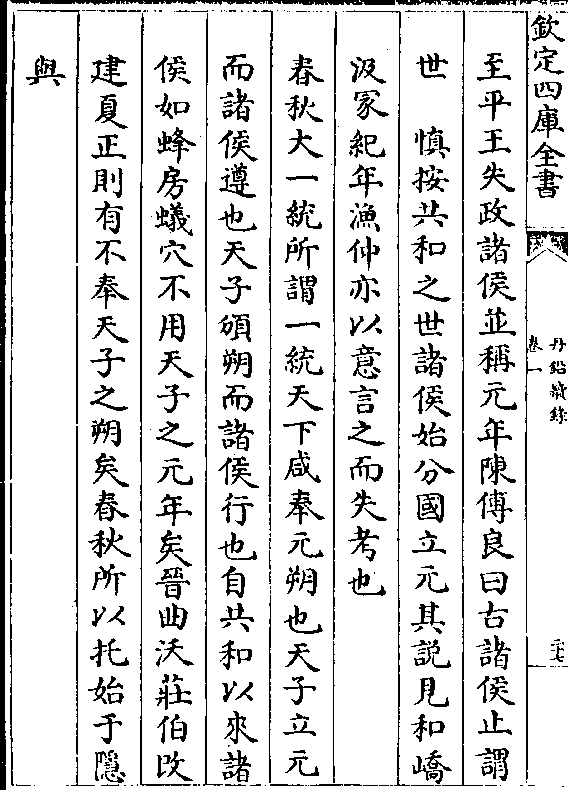 欽定四庫全書
丹鉛續錄
卷一
至平王失政諸侯並稱元年陳傅良曰古諸侯止謂
世　慎按共和之世諸侯始分國立元其説見和嶠
汲冢紀年漁仲亦以意言之而失考也
春秋大一統所謂一統天下咸奉元朔也天子立元
而諸侯遵也天子頒朔而諸侯行也自共和以來諸
侯如蜂房蟻穴不用天子之元年矣晉曲沃莊伯改
建夏正則有不奉天子之朔矣春秋所以托始于隱
與